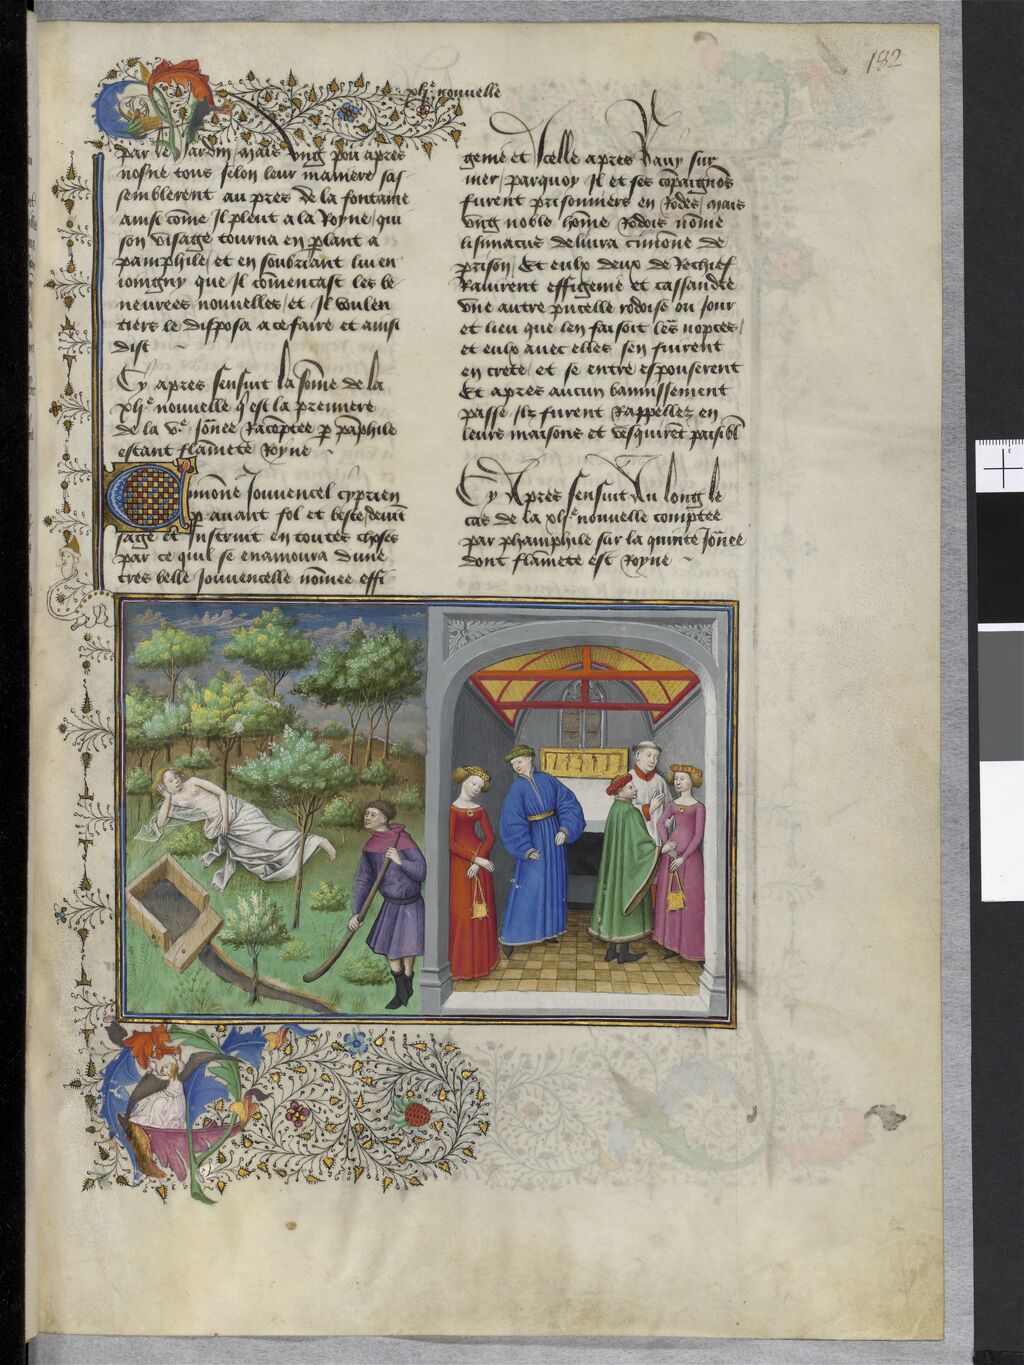 182
xlj.e nouuelle
par le Jardin, mais vng pou apres
nosne tous selon leur maniere sas-
semblerent au pres de la fontaine
ainsi cõme Il pleut a la Royne, qui
son visage tourna en plant a
pamphile, et en soubriant lui en
ioingny que Il cõmencast les be-
neurees nouuelles, et Il voulen
tiers se disposa a ce faire et ainsi
dist
Cy apres sensuit la sõme de la
xlj.e nouuelle q̃ est la premiere
de la v.e Jõnee Racõptee p pãphile
estant flãmete Royne
Cymone Jouuencel cyprien
p auant fol et beste, deuĩt
sage et Instruit en toutes choses
par ce quil se enamoura dune
tres belle Jouuencelle nõmee effi
genie et Icelle apres Rauy sur
mer, parquoy Il et ses cõpaignõs
furent prisonniers en Rodes, mais
vng noble hõme Rodois nõme
lisimacus deliura cimone de
prison, Et eulx deux de Rechief
Rauirent effigenie et cassandre
vne autre pucelle rodoise ou Jour
et lieu que len faisoit les nopces,
et eulx auec elles sen fuirent
en crete, et se entre espouserent
Et apres aucun bannissement
passe ilz furent Rappellez en
leurs maisons et vesquirẽt paisibl
Cy Apres sensuit Au long le
cas de la xlj.e nouuelle comptee
par phamphile sur la quinte Jõnee
dont flãmete est Royne